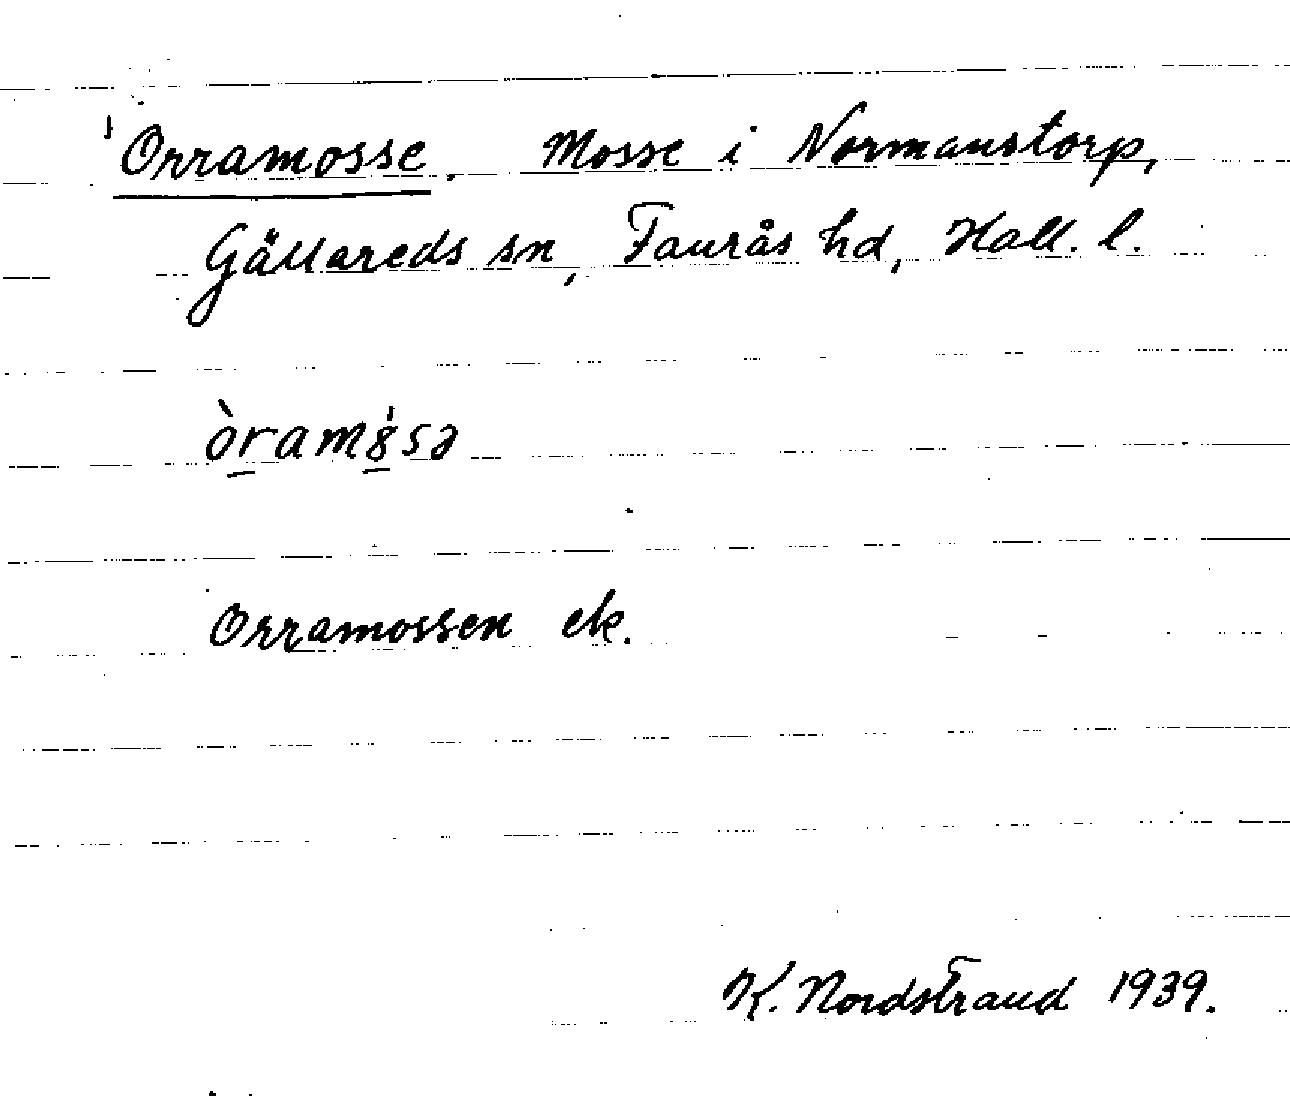 Orramosse. Mosse i Normanstorp,
Gällareds sn, Faurås hd, Hall. l.
òramꞛ́sə
Orramossen ek.
K. Nordstrand 1939.